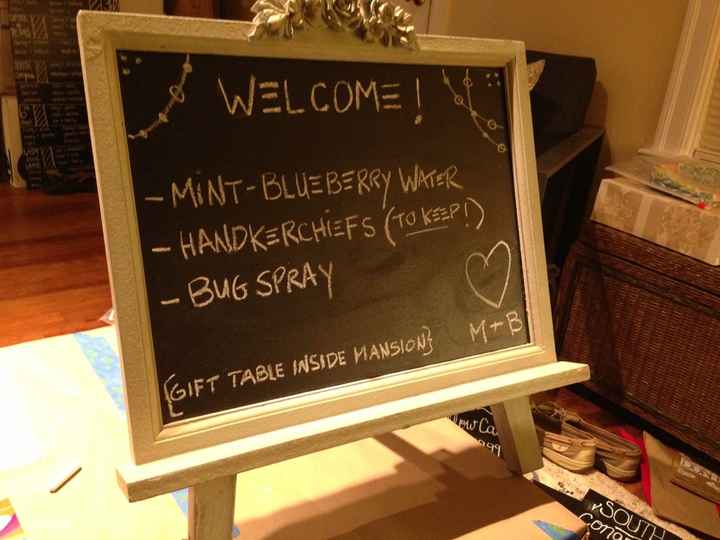 WELCOME!
- MINT-BLUEBERRY WATER
- HANDKERCHIEFS (TO KEEP!)
- BUG SPRAY
M + B
{GIFT TABLE INSIDE MANSION}
SOUTH